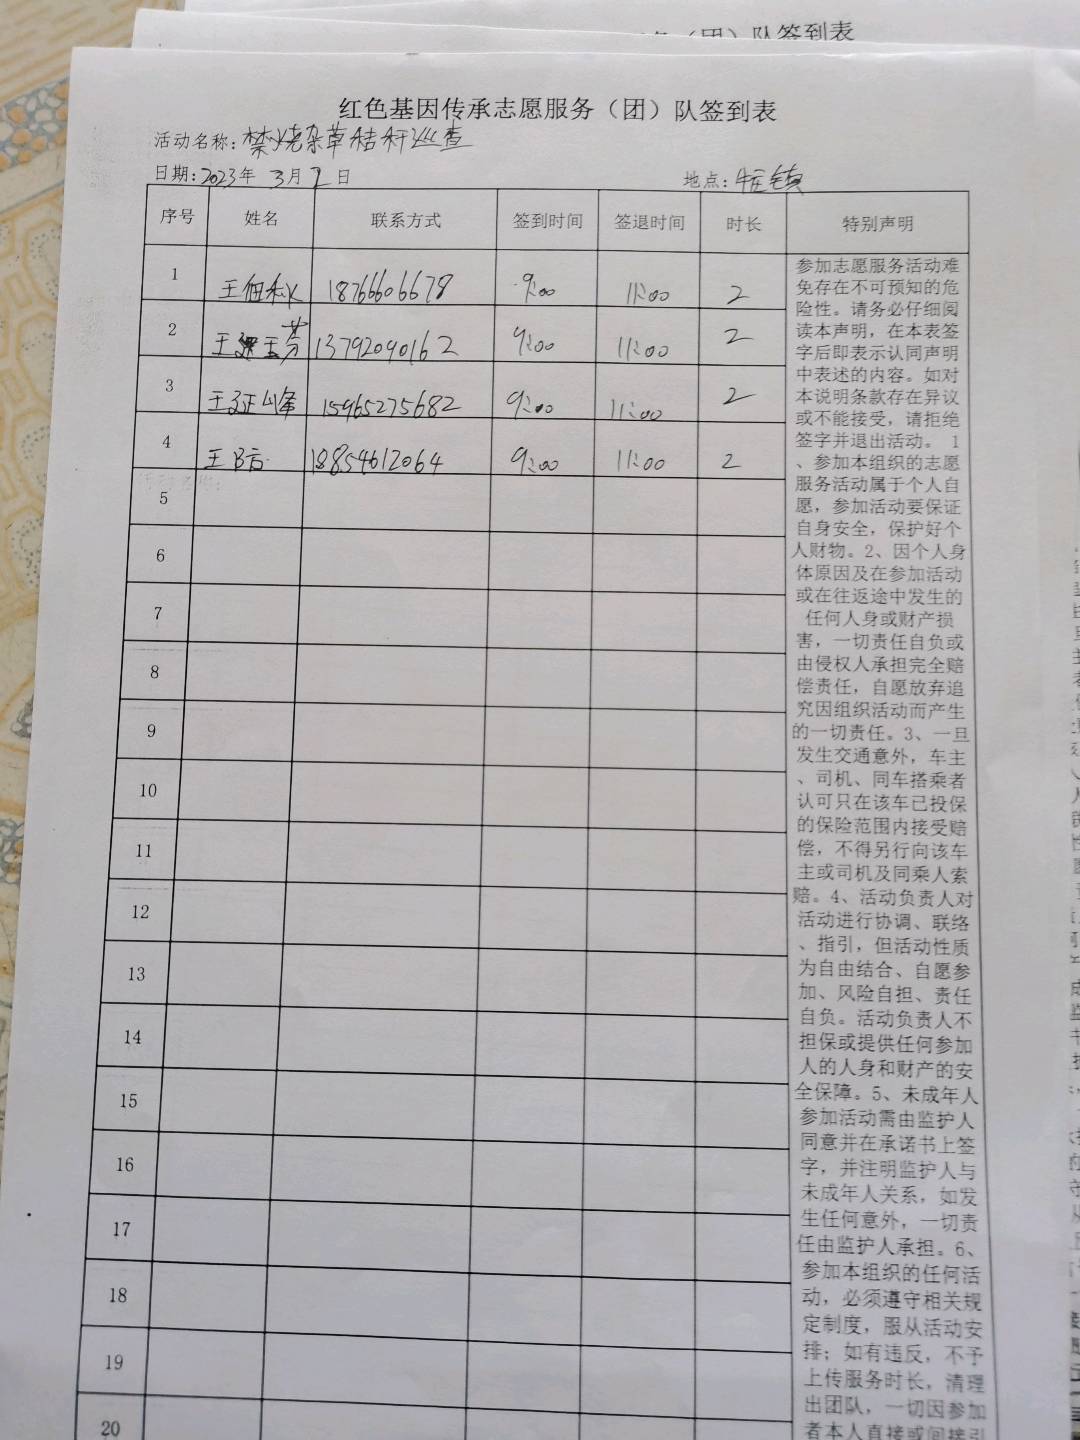 （团）队签到表
红色基因传承志愿服务（团）队签到表
活动名称：禁烧杂草秸秆巡查
日期：2023年 3月 2日
地点：镇
序号 姓名 联系方式 签到时间 签退时间 时长 特别声明
1 王秋 18766606678 9:00 11:00 2
2 王玉芬 13792090162 9:00 11:00 2
3 王峰 15965275682 9:00 11:00 2
4 王 18854612064 9:00 11:00 2
5
6
7
8
9
10
11
12
13
14
15
16
17
18
19
20
参加志愿服务活动难
免存在不可预知的危
险性。请务必仔细阅
读本声明，在本表签
字后即表示认同声明
中表述的内容。如对
本说明条款存在异议
或不能接受，请拒绝
签字并退出活动。 1
、参加本组织的志愿
服务活动属于个人自
愿，参加活动要保证
自身安全，保护好个
人财物。2、因个人身
体原因及在参加活动
或在往返途中发生的
任何人身或财产损
害，一切责任自负或
由侵权人承担完全赔
偿责任，自愿放弃追
究因组织活动而产生
的一切责任。3、一旦
发生交通意外，车主
、司机、同车搭乘者
认可只在该车已投保
的保险范围内接受赔
偿，不得另行向该车
主或司机及同乘人索
赔。4、活动负责人对
活动进行协调、联络
、指引，但活动性质
为自由结合、自愿参
加、风险自担、责任
自负。活动负责人不
担保或提供任何参加
人的人身和财产的安
全保障。5、未成年人
参加活动需由监护人
同意并在承诺书上签
字，并注明监护人与
未成年人关系，如发
生任何意外，一切责
任由监护人承担。6、
参加本组织的任何活
动，必须遵守相关规
定制度，服从活动安
排；如有违反，不予
上传服务时长，清理
出团队，一切因参加
者本人直接或间接引